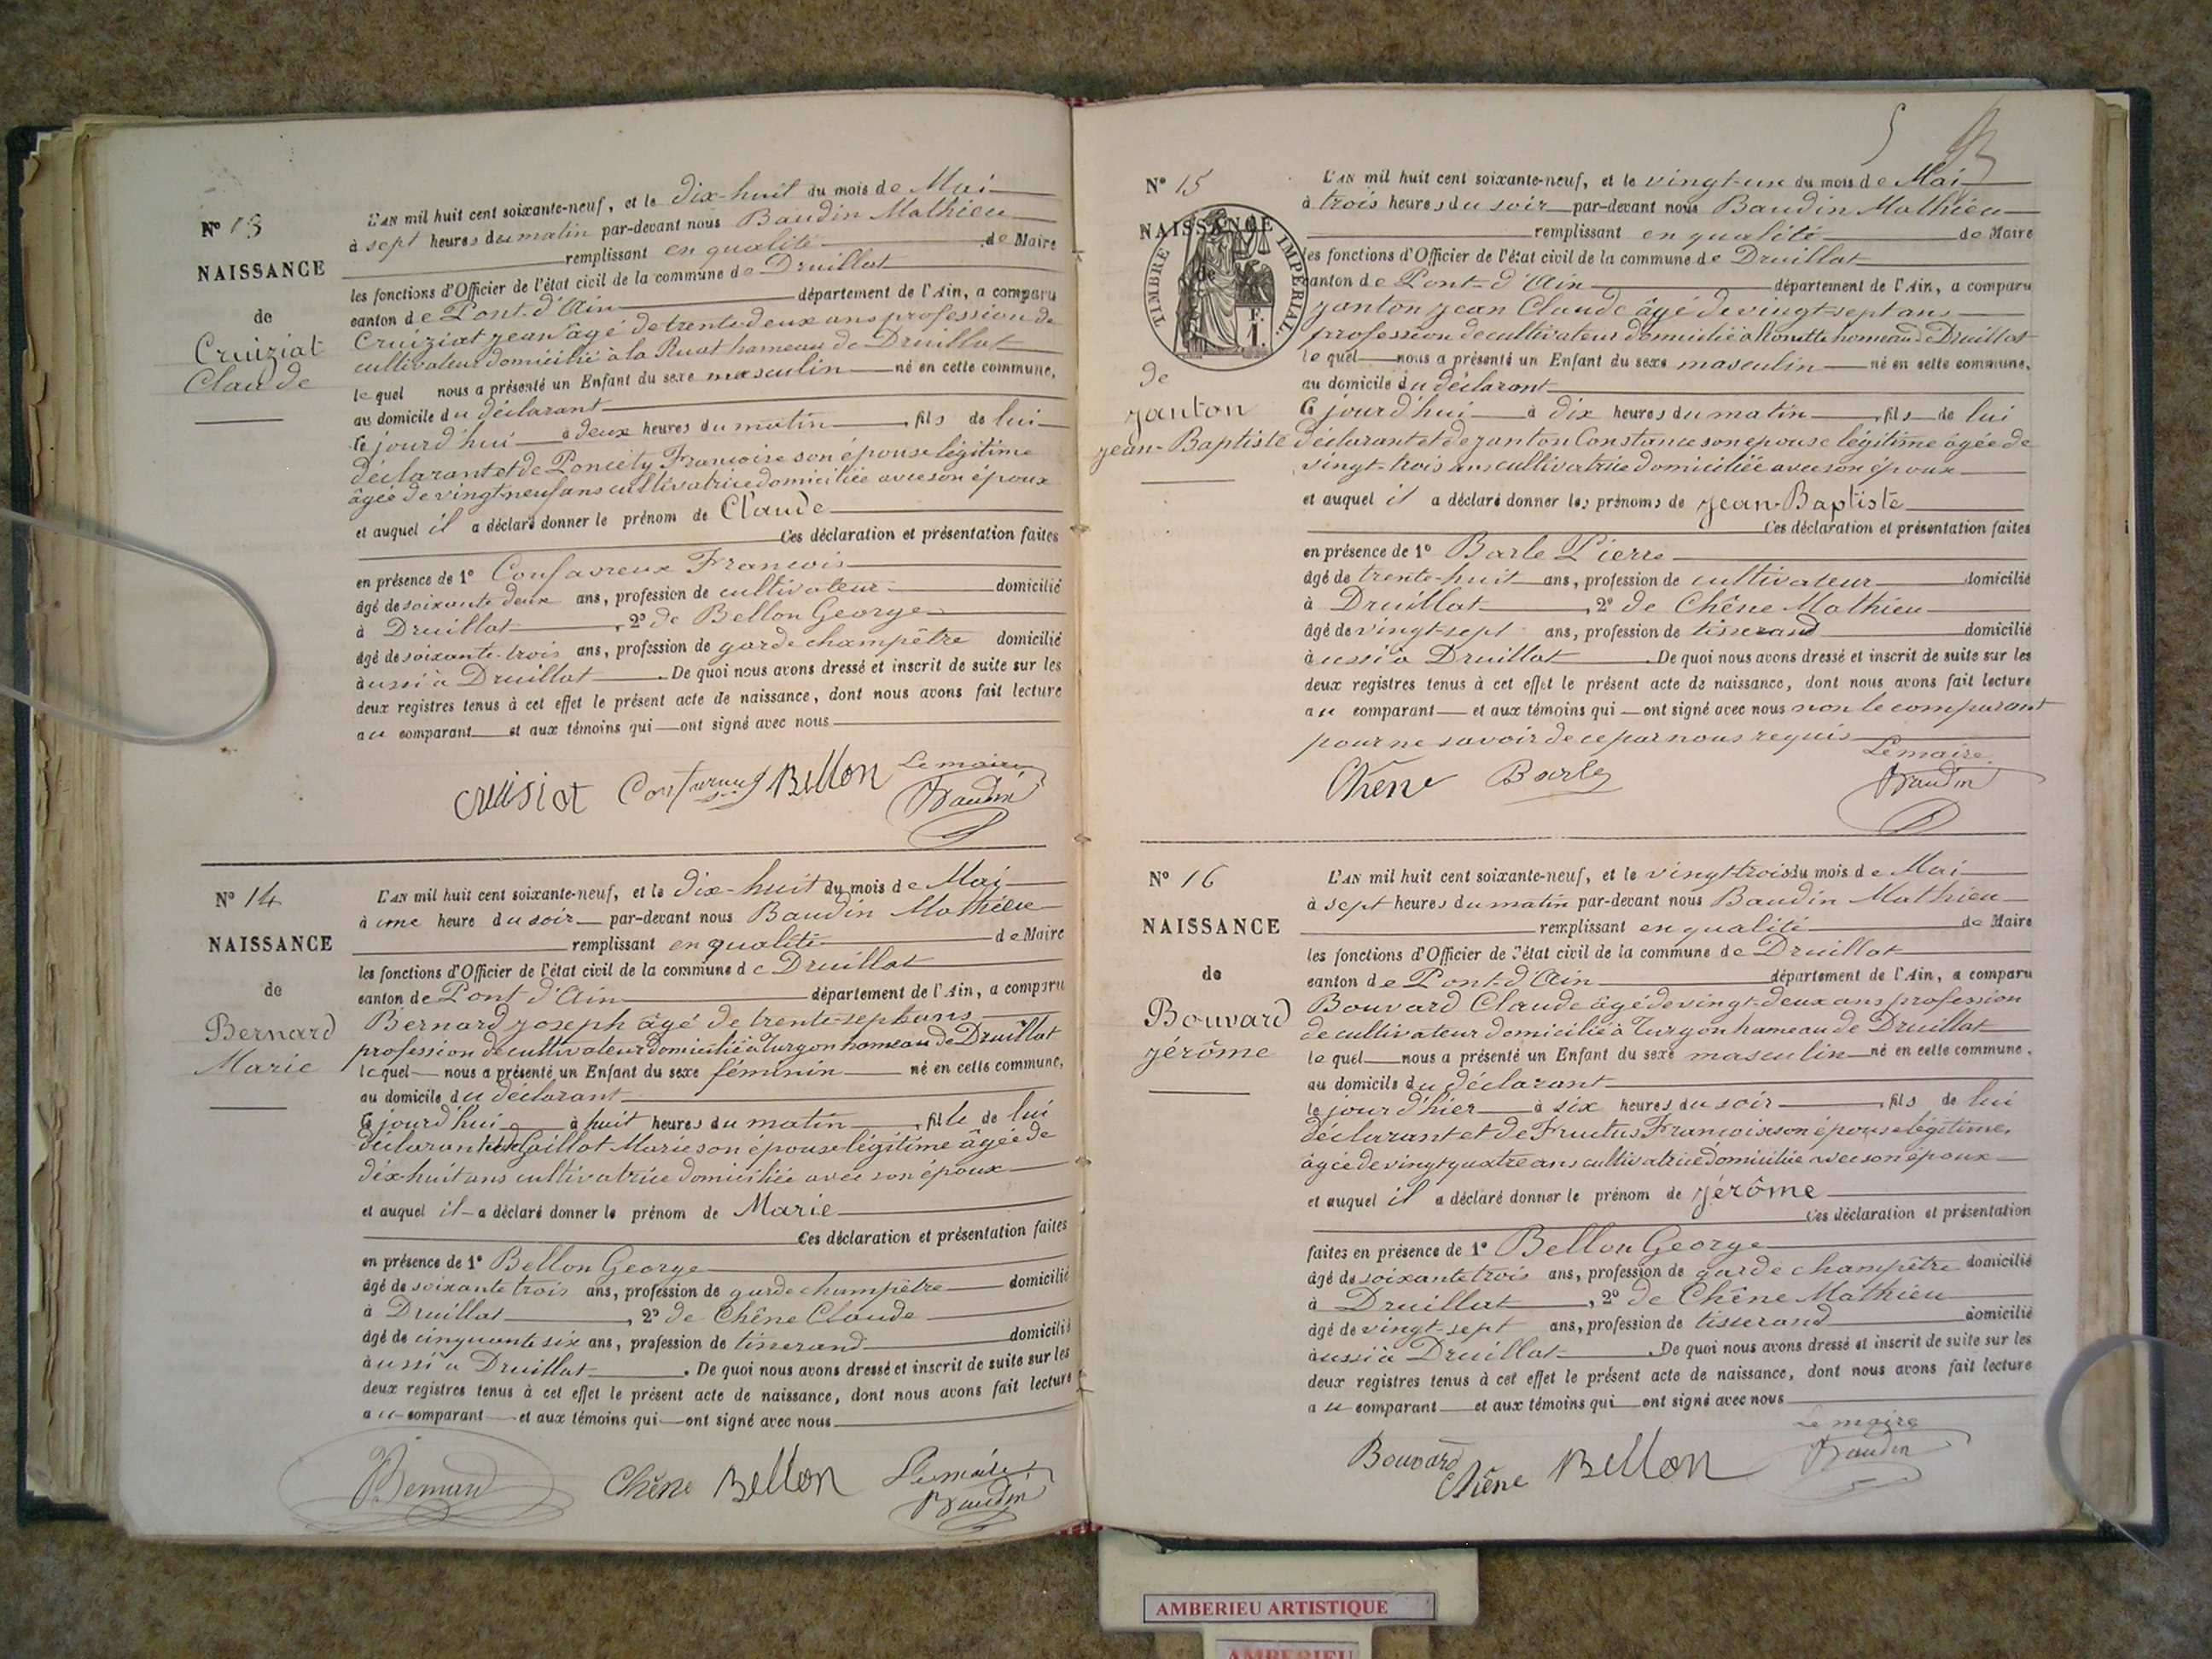 N° 13
NAISSANCE
de
Cruiziat
Claude
L'AN mil huit cent soixante-neuf, et le dix-huit du mois de Mai
à sept heures du matin par-devant nous Baudin Mathieu
remplissant en qualité de Maire
les fonctions d'Officier de l'état civil de la commune de Druillat
canton de Pont-d'Ain département de l'Ain, a comparu
Cruiziat Jean âgé de trente deux ans profession de
cultivateur domicilié à la Ruat hameau de Druillat
lequel nous a présenté un Enfant du sexe masculin né en cette commune,
au domicile du déclarant
le jourd'hui à deux heures du matin, fils de lui
déclarant et de Poncety Françoise son épouse légitime
âgée de vingt neuf ans cultivatrice domiciliée avec son époux
et auquel il a déclaré donner le prénom de Claude
Ces déclaration et présentation faites
en présence de 1° Confavreux François
âgé de soixante deux ans, profession de cultivateur domicilié
à Druillat, 2° de Bellon George
âgé de soixante-trois ans, profession de garde champêtre domicilié
aussi à Druillat. De quoi nous avons dressé et inscrit de suite sur les
deux registres tenus à cet effet le présent acte de naissance, dont nous avons fait lecture
au comparant et aux témoins qui ont signé avec nous
cruisiat Bellon Le maire
Baudin
N° 14
NAISSANCE
de
Bernard
Marie
L'AN mil huit cent soixante-neuf, et le dix-huit du mois de Mai
à une heure du soir par-devant nous Baudin Mathieu
remplissant en qualité de Maire
les fonctions d'Officier de l'état civil de la commune de Druillat
canton de Pont d'Ain département de l'Ain, a comparu
Bernard Joseph âgé de trente-sept ans
profession de cultivateur domicilié à Turgon hameau de Druillat
lequel nous a présenté un Enfant du sexe féminin né en cette commune,
au domicile du déclarant
le jourd'hui à huit heures du matin, fille de lui
déclarant et de Gaillot Marie son épouse légitime âgée de
dix-huit ans cultivatrice domiciliée avec son époux
et auquel il a déclaré donner le prénom de Marie
Ces déclaration et présentation faites
en présence de 1° Bellon George
âgé de soixante trois ans, profession de garde champêtre domicilié
à Druillat, 2° de Chêne Claude
âgé de cinquante six ans, profession de tisserand domicilié
aussi à Druillat. De quoi nous avons dressé et inscrit de suite sur les
deux registres tenus à cet effet le présent acte de naissance, dont nous avons fait lecture
au comparant et aux témoins qui ont signé avec nous
Bernard Chêne Bellon Le maire
Baudin
5
N° 15
NAISSANCE
TIMBRE IMPÉRIAL
F.
1.
de
Janton
Jean-Baptiste
L'AN mil huit cent soixante-neuf, et le vingt-un du mois de Mai
à trois heures du soir par-devant nous Baudin Mathieu
remplissant en qualité de Maire
les fonctions d'Officier de l'état civil de la commune de Druillat
canton de Pont-d'Ain département de l'Ain, a comparu
Janton Jean Claude âgé de vingt-sept ans
profession de cultivateur domicilié à hameau de Druillat
lequel nous a présenté un Enfant du sexe masculin né en cette commune,
au domicile du déclarant
le jourd'hui à dix heures du matin, fils de lui
déclarant et de Janton Constance son épouse légitime âgée de
vingt-trois ans cultivatrice domiciliée avec son époux
et auquel il a déclaré donner les prénoms de Jean-Baptiste
Ces déclaration et présentation faites
en présence de 1° Barle Pierre
âgé de trente-huit ans, profession de cultivateur domicilié
à Druillat, 2° de Chêne Mathieu
âgé de vingt-sept ans, profession de tisserand domicilié
aussi à Druillat. De quoi nous avons dressé et inscrit de suite sur les
deux registres tenus à cet effet le présent acte de naissance, dont nous avons fait lecture
au comparant et aux témoins qui ont signé avec nous non le comparant
pour ne savoir de ce par nous requis Le maire
Chêne Barle Baudin
N° 16
NAISSANCE
de
Bouvard
Jérôme
L'AN mil huit cent soixante-neuf, et le vingt-trois du mois de Mai
à sept heures du matin par-devant nous Baudin Mathieu
remplissant en qualité de Maire
les fonctions d'Officier de l'état civil de la commune de Druillat
canton de Pont-d'Ain département de l'Ain, a comparu
Bouvard Claude âgé de vingt-deux ans profession
de cultivateur domicilié à Turgon hameau de Druillat
lequel nous a présenté un Enfant du sexe masculin né en cette commune,
au domicile du déclarant
le jour d'hier à six heures du soir, fils de lui
déclarant et de Fructus Françoise son épouse légitime,
âgée de vingt quatre ans cultivatrice domiciliée avec son époux
et auquel il a déclaré donner le prénom de Jérôme
Ces déclaration et présentation
faites en présence de 1° Bellon George
âgé de soixante trois ans, profession de garde champêtre domicilié
à Druillat, 2° de Chêne Mathieu
âgé de vingt-sept ans, profession de tisserand domicilié
aussi à Druillat. De quoi nous avons dressé et inscrit de suite sur les
deux registres tenus à cet effet le présent acte de naissance, dont nous avons fait lecture
au comparant et aux témoins qui ont signé avec nous
Le maire
Bouvard Chêne Bellon Baudin
AMBERIEU ARTISTIQUE
AMBERIEU